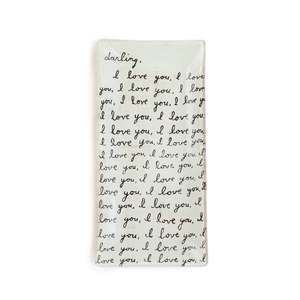 darling,
I love you, I love
you, I love you, I love
you, I love you, I love you,
I love you, I love you,
I love you, I love you,
I love you, I love you, I
love you, I love you, I
love you, I love you, I
love you, I love you, I
love you, I love you, I
love you, I love you, I
love you, I love you, I
love you, I love you, I